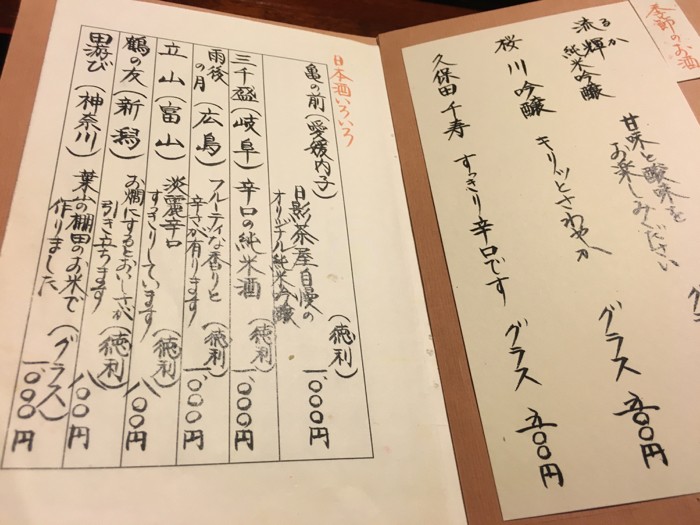 季節のお酒
るか
流輝 純米吟醸
甘味と酸味を
お楽しみください
桜川吟醸 キリッとさわやか グラス 五〇〇円
久保田千寿 すっきり辛口です グラス 五〇〇円
日本酒いろいろ
亀の前(愛媛内子)
日影茶屋自慢の
オリジナル純米吟醸
(徳利) 一、〇〇〇円
三千盛(岐阜) 辛口の純米酒 (徳利) 一、〇〇〇円
雨後の月(広島)
フルーティな香りと
辛さが有ります
(徳利) 一、〇〇〇円
立山(富山)
淡麗辛口
すっきりしています
(徳利) 八〇〇円
鶴の友(新潟)
お燗にするとおいしさが
引き立ちます
(徳利) 八〇〇円
田遊び(神奈川)
葉山の棚田のお米で
作りました
(グラス) 一、〇〇〇円